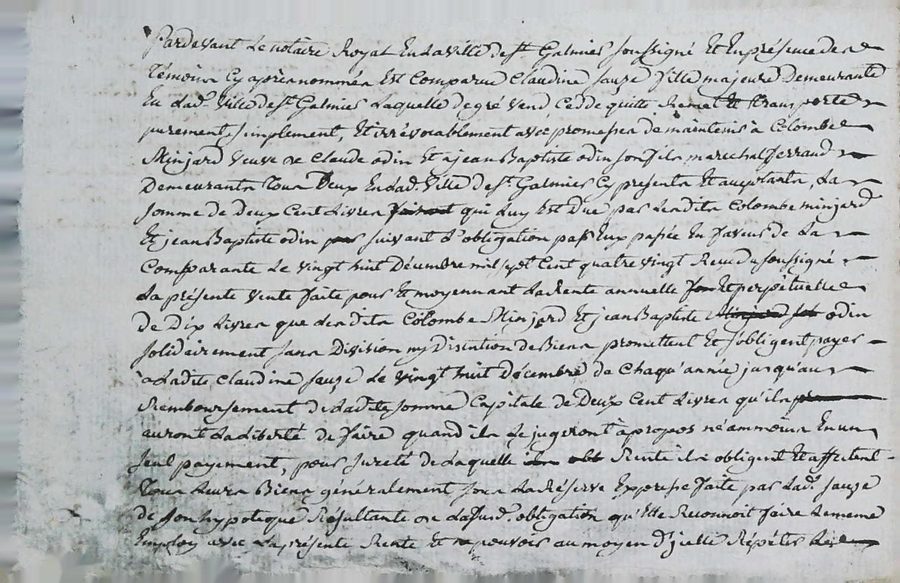 Pardevant Le notaire Royal En La ville de St. Galmier soussigné Et En présence des
témoins Cy après nommés Est Comparue Claudine sauze fille majeure Demeurante
En Lad. ville de St. Galmier Laquelle de gré vend Cedde quitte Remet Et transporte
purement, simplement, Et irrévocablement avec promesses de maintenir à Colombe
Minjard veuve de Claude odin Et a jean Baptiste odin son fils marechal ferrand
Demeurants tous Deux En Lad. ville de St. Galmier Cy presents Et acceptants, La
somme de Deux Cent Livres qui Luy Est Due par Lesdits Colombe minjard
Et jean Baptiste odin suivant L'obligation par Eux passée En faveur de La
Comparante Le vingt huit Décembre mil sept Cent quatre vingt Recu du soussigné
La présente vente faite pour Et moyennant La Rente annuelle Et perpétuelle
de Dix Livres que Lesdits Colombe Minjard Et jean Baptiste odin
solidairement sans Division ny Discution de Biens promettent Et s'obligent payer
a Ladite Claudine sauze Le vingt huit Décembre de Chaqu'année jusqu'au
Remboursement de Ladite somme Capitale de Deux Cent Livres qu'ils
auront La Liberté de faire quand ils Le jugeront à propos néammoins En un
seul payement, pour sureté de Laquelle Rente ils obligent Et affectent
tous Leurs Biens généralement sous La Réserve Expresse faite par Lad. sauze
de son hypoteque Résultante de La susd. obligation qu'Elle Reconnoit faire Le meme
Employ avec La présente Rente Et pouvoir au moyen d'jcelle Répéter Les